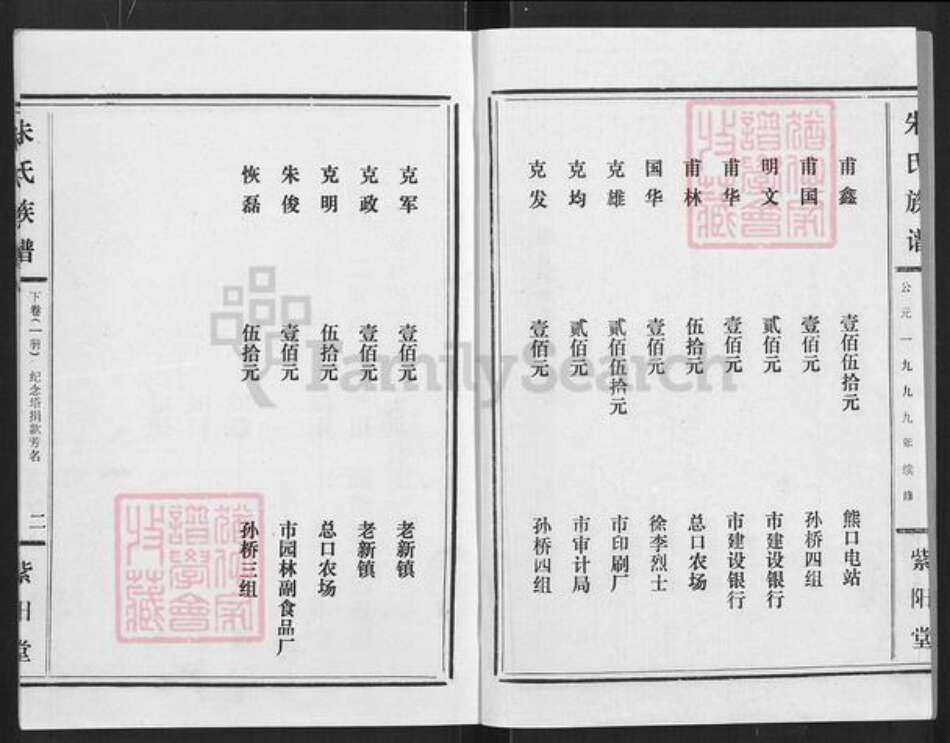 朱氏族谱
公元一九九九年续修
紫阳堂
甫鑫 壹佰伍拾元 熊口电站
甫国 壹佰元 孙桥四组
明文 贰佰元 市建设银行
甫华 壹佰元 市建设银行
甫林 伍拾元 总口农场
国华 壹佰元 徐李烈士
克雄 贰佰伍拾元 市印刷厂
克均 贰佰元 市审计局
克发 壹佰元 孙桥四组
克军 壹佰元 老新镇
克政 壹佰元 老新镇
克明 伍拾元 总口农场
朱俊 壹佰元 市园林副食品厂
恢磊 伍拾元 孙桥三组
朱氏族谱
下卷(一册) 纪念塔捐款芳名
二
紫阳堂
FamilySearch